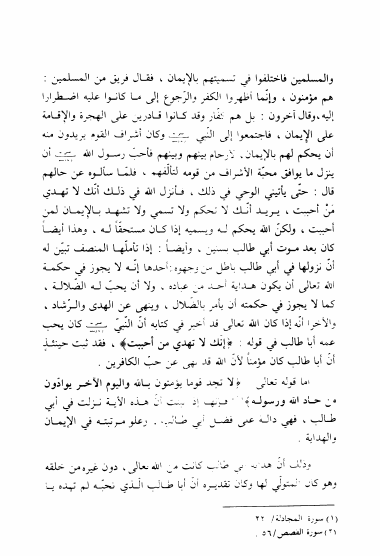 والمسلمين فاختلفوا في تسميتهم بالإيمان ، فقال فريق من المسلمين :
هم مؤمنون ، وإنّما أظهروا الكفر والرّجوع إلى ما كانوا عليه اضطرارا
إليه، وقال آخرون : بل هم كفّار وقد كانوا قادرين على الهجرة والإقامة
على الإيمان ، فاجتمعوا إلى النّبي وكان أشراف القوم يريدون منه
أن يحكم لهم بالإيمان، لأرحام بينهم وبينهم فأحبّ رسول الله أن
ينزل ما يوافق محبّة الأشراف من قومه لتألّفهم ، فلمّا سألوه عن حالهم
قال : حتّى يأتيني الوحي في ذلك ، فأنزل الله في ذلك أنّك لا تهدي
مَنْ أحببت ، يريد أنّك لا تحكم ولا تسمي ولا تشهد بالإيمان لمن
أحببت ، ولكنّ الله يحكم له ويسميه إذا كان مستحقّاً له ، وهذا أيضاً
كان بعد موت أبي طالب بسنين ، وأيضاً : إذا تأملها المنصف تبيّن له
أنّ نزولها في أبي طالب باطل من وجوه: أحدها إنّه لا يجوز في حكمة
الله تعالى أن يكون هداية أحد من عباده ، ولا أن يحبّ له الضلالة ،
كما لا يجوز في حكمته أن يأمر بالضّلال ، وينهى عن الهدى والرّشاد ،
والآخر: أنّه إذا كان الله تعالى قد أخبر في كتابه أنّ النّبيّ كان يحب
عمه أبا طالب في قوله : ﴿إنّك لا تهدي من أحببت﴾ ، فقد ثبت حينئذٍ
أنّ أبا طالب كان مؤمناً لأنّ الله قد نهى عن حبّ الكافرين .
اما قوله تعالى ﴿لا تجد قوما يؤمنون بالله واليوم الآخر يوادّون
من حاد الله ورسوله﴾ أنّ هذه الآية نزلت في أبي
طالب ، فهي دالة على فضل أبي طالب، وعلو مرتبته في الإيمان
والهداية .
وذلك أنّ هداية أبي طالب كانت من الله تعالى، دون غيره من خلقه
وهو كان المتولّي لها وكان تقديره أنّ أبا طالب الّذي تحبّه لم تهده يا
(١) سورة المجادلة/ ٢٢
(٢) سورة القصص/ ٥٦ .